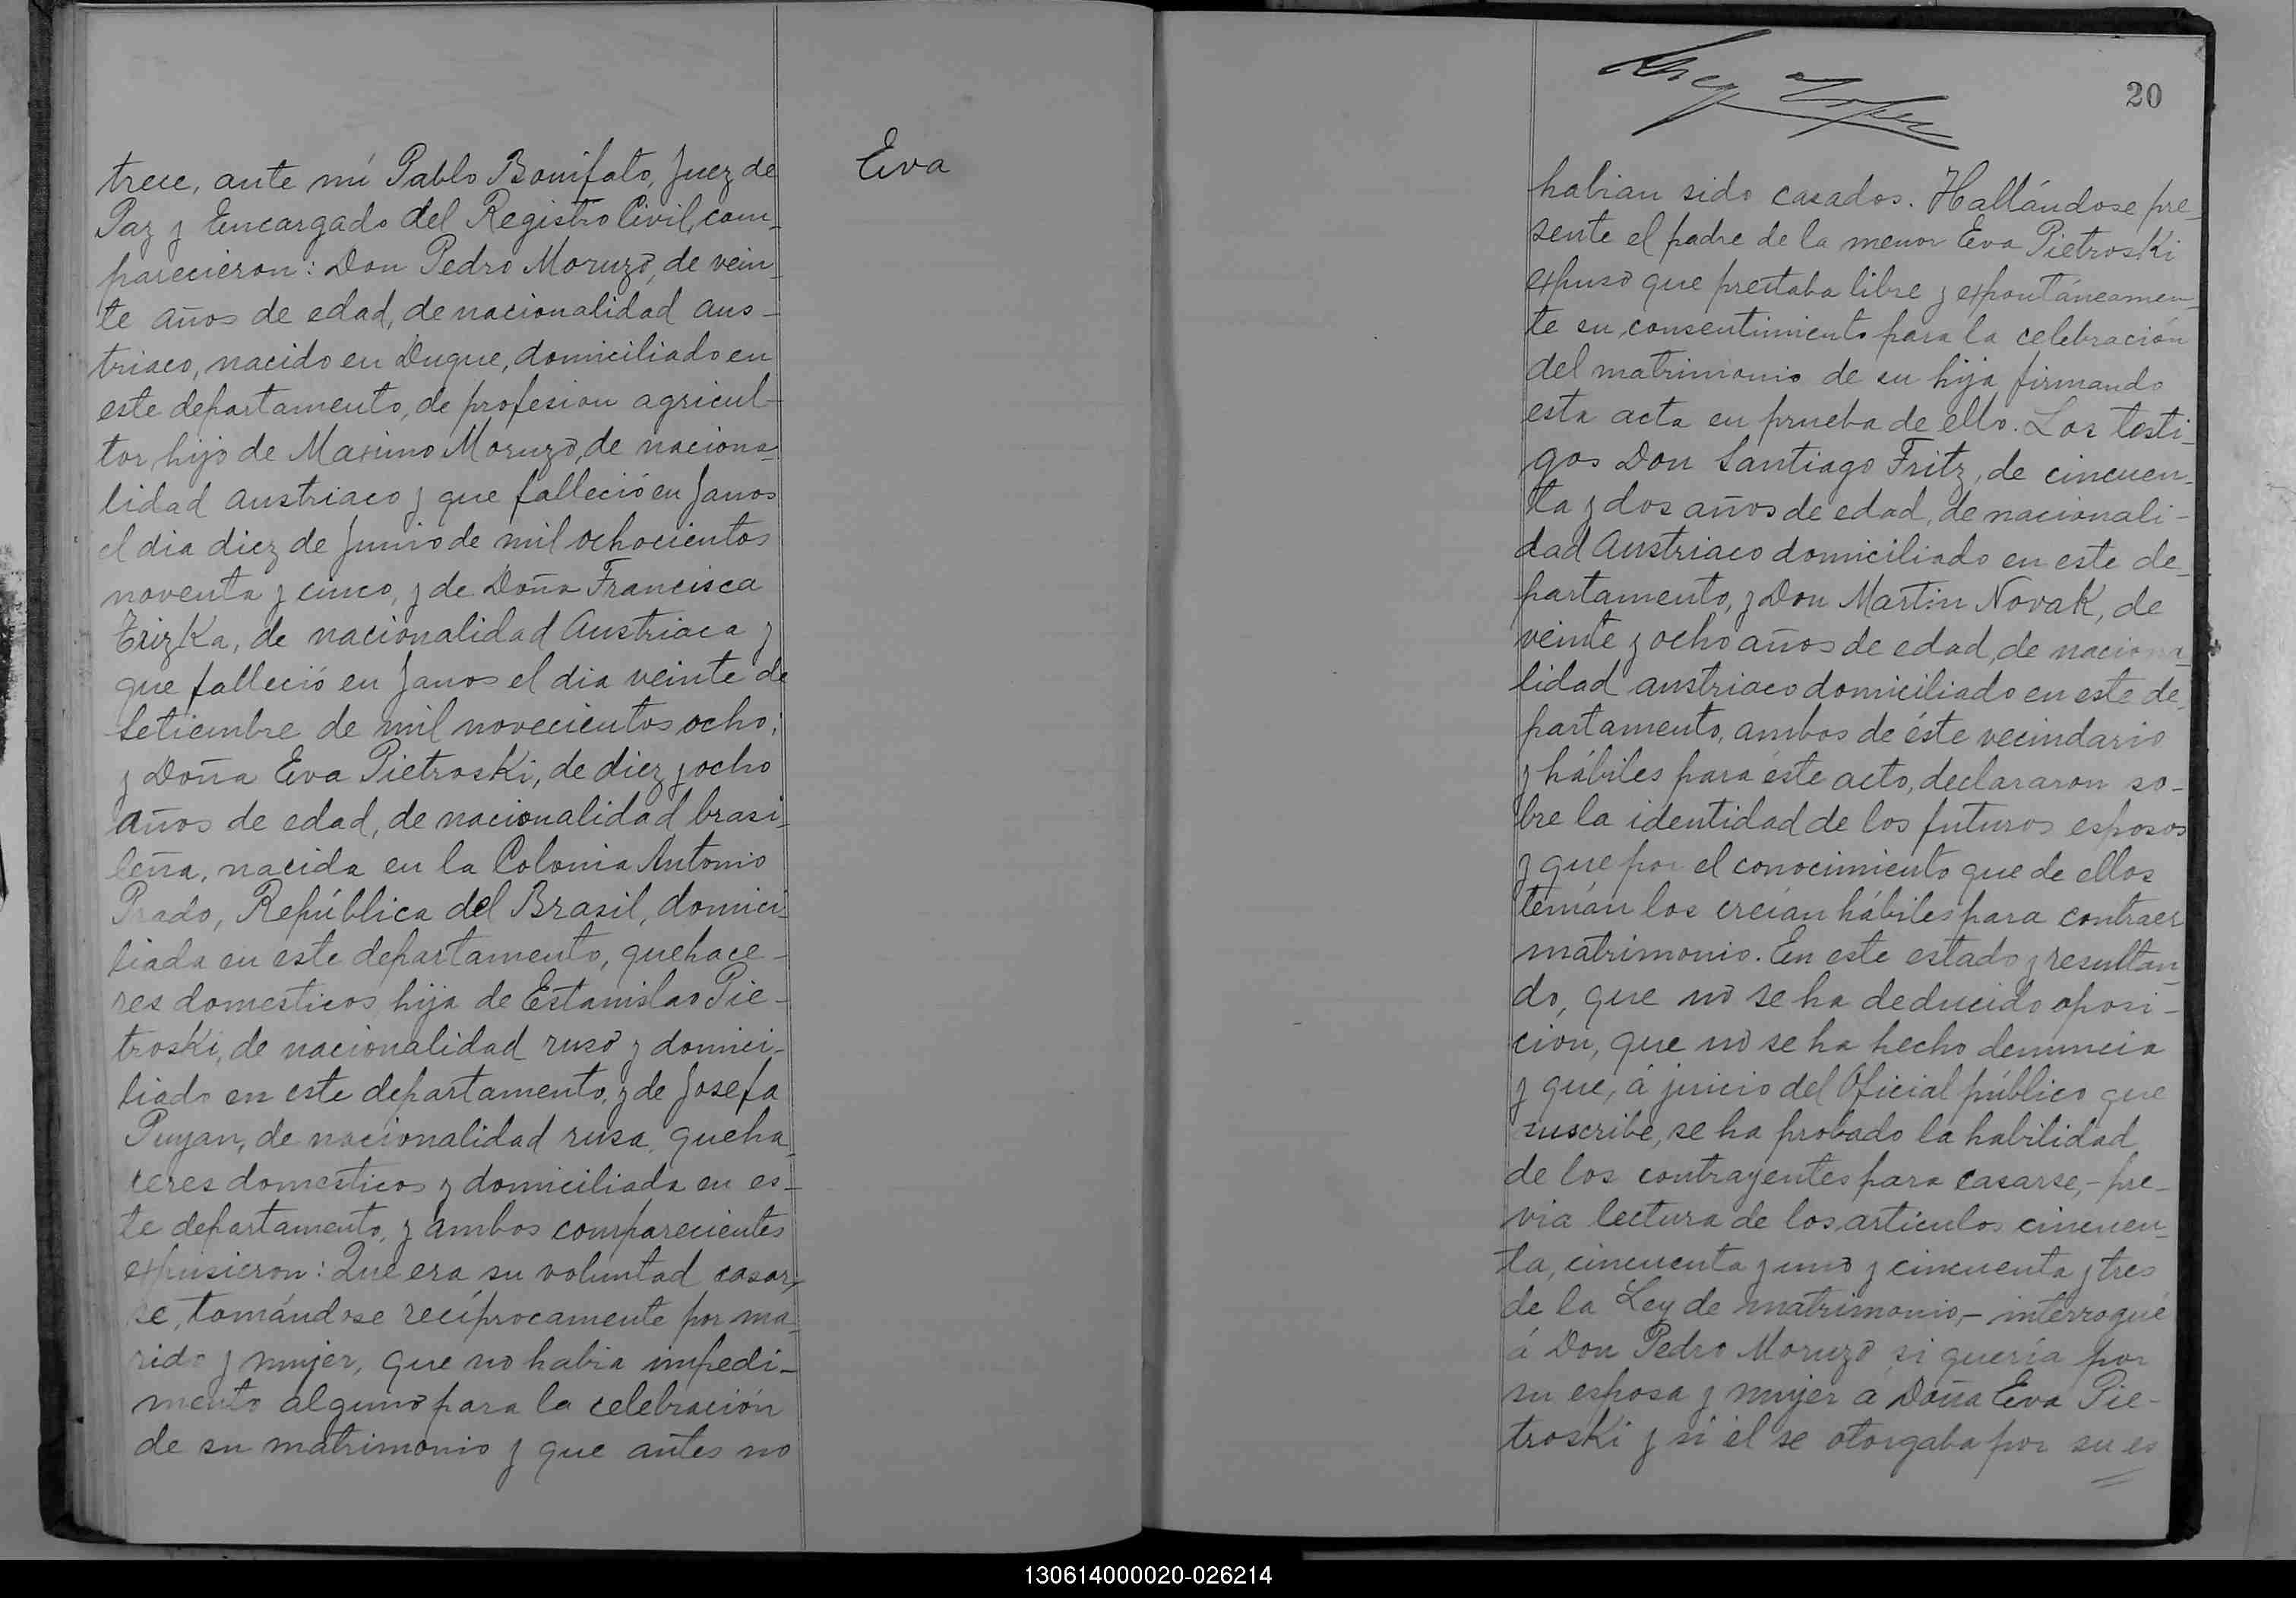 trece, ante mí Pablo Bonifato, Juez de
Paz y Encargado del Registro Civil, com-
parecieron: Don Pedro Moruzo, de vein-
te años de edad, de nacionalidad aus-
triaco, nacido en Duque, domiciliado en
este departamento, de profesion agricul-
tor, hijo de Maximo Moruzo, de naciona-
lidad austriaco y que falleció en Janos
el dia diez de Junio de mil ochocientos
noventa y cinco, y de Doña Francisca
de nacionalidad Austriaca y
que falleció en Janos el dia veinte de
Setiembre de mil novecientos ocho;
y Doña Eva Pietroski, de diez y ocho
años de edad, de nacionalidad brasi-
leña, nacida en la Colonia Antonio
Prado, República del Brasil, domici-
liada en este departamento, quehace-
res domesticos, hija de Estanislao Pie-
troski, de nacionalidad ruso y domici-
liado en este departamento, y de Josefa
Puyan, de nacionalidad rusa, queha-
ceres domesticos y domiciliada en es-
te departamento, y ambos comparecientes
expusieron: Que era su voluntad casar-
se, tomándose recíprocamente por ma-
rido y mujer, que no habia impedi-
mento alguno para la celebración
de su matrimonio y que antes no
Eva
20
habian sido casados. Hallándose pre-
sente el padre de la menor Eva Pietroski
expuso que prestaba libre y expontáneamen-
te su consentimiento para la celebración
del matrimonio de su hija firmando
esta acta en prueba de ello. Los testi-
gos Don Santiago Fritz, de cincuen-
ta y dos años de edad, de nacionali-
dad Austriaco domiciliado en este de-
partamento, y Don Martin Novak, de
veinte y ocho años de edad, de naciona-
lidad austriaco domiciliado en este de-
partamento, ambos de éste vecindario
y hábiles para éste acto, declararon so-
bre la identidad de los futuros esposos
y que por el conocimiento que de ellos
tenían los creían hábiles para contraer
matrimonio. En este estado y resultan-
do, que no se ha deducido oposi-
ción, que no se ha hecho denuncia
y que, á juicio del Oficial público que
suscribe, se ha probado la habilidad
de los contrayentes para casarse, - pre-
via lectura de los articulos cincuen-
ta, cincuenta y uno y cincuenta y tres
de la Ley de matrimonio, - interrogué
á Don Pedro Moruzo si quería por
su esposa y mujer á Doña Eva Pie-
troski y si él se otorgaba por su es
130614000020-026214